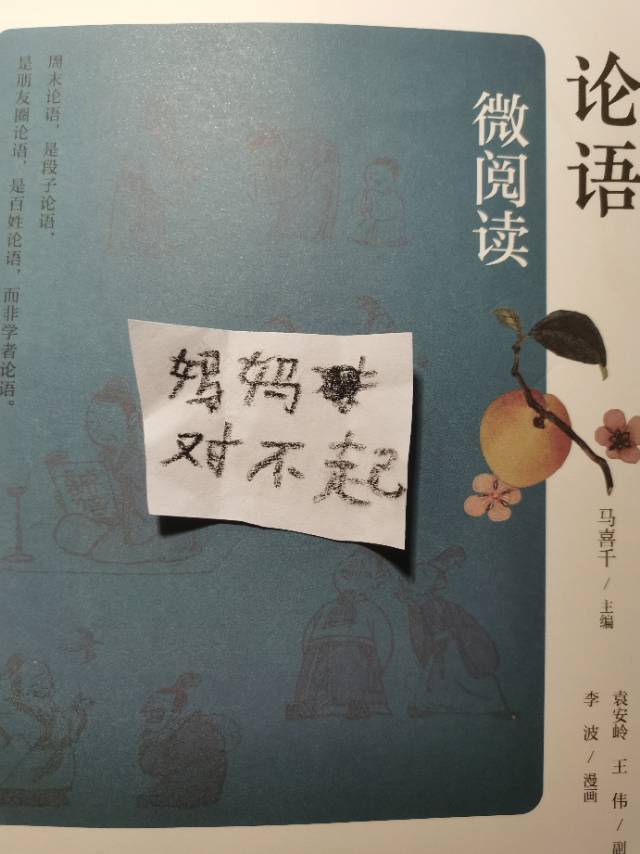 论语
微阅读
周末论语，是段子论语，
是朋友圈论语，是百姓论语，而非学者论语。
妈妈
对不起
马喜千 / 主编
袁安岭 王伟 / 副
李波 / 漫画